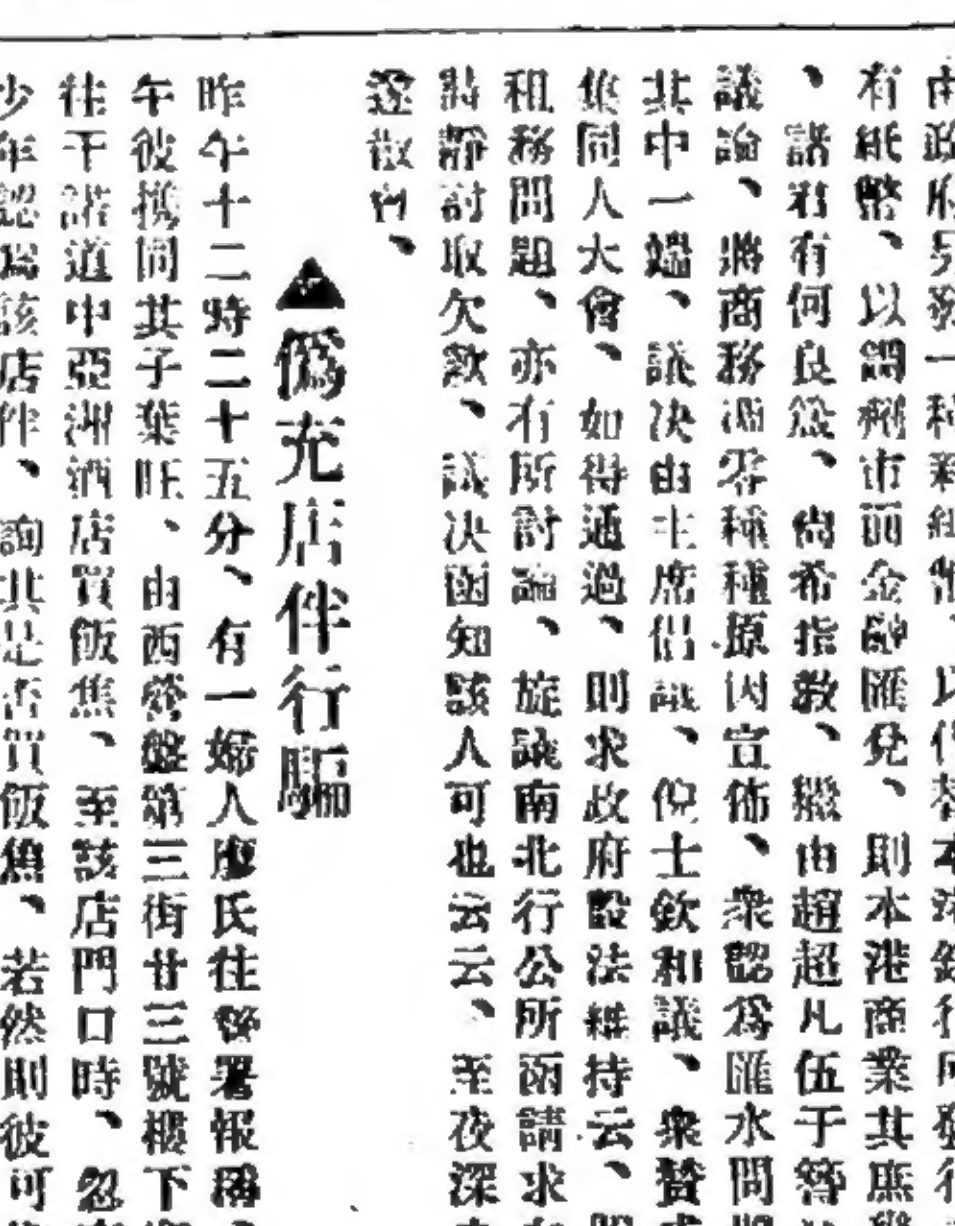 由政府另發一種新紙幣、以代替本港銀行所發行
有紙幣、以調劑市面金融匯兌、則本港商業其庶
、諸君有何良策、尚希指教、繼由趙超凡伍于簪
議論、將商務凋零種種原因宣佈、衆認爲匯水問
其中一端、議决由主席倡議、倪士欽和議、衆贊成
集同人大會、如得通過、則求政府設法維持云、
租務問題、亦有所討論、旋議南北行公所函請求
將靜討取欠款、議决函知該人可也云云、至夜深
遂散會、
▲僞充店伴行騙
昨午十二時二十五分、有一婦人廖氏往警署報稱
午彼携同其子葉旺、由西營盤第三街廿三號樓下
往干諾道中亞洲酒店買飯焦、至該店門口時、忽
少年認爲該店伴、詢其是否買飯焦、若然則彼可